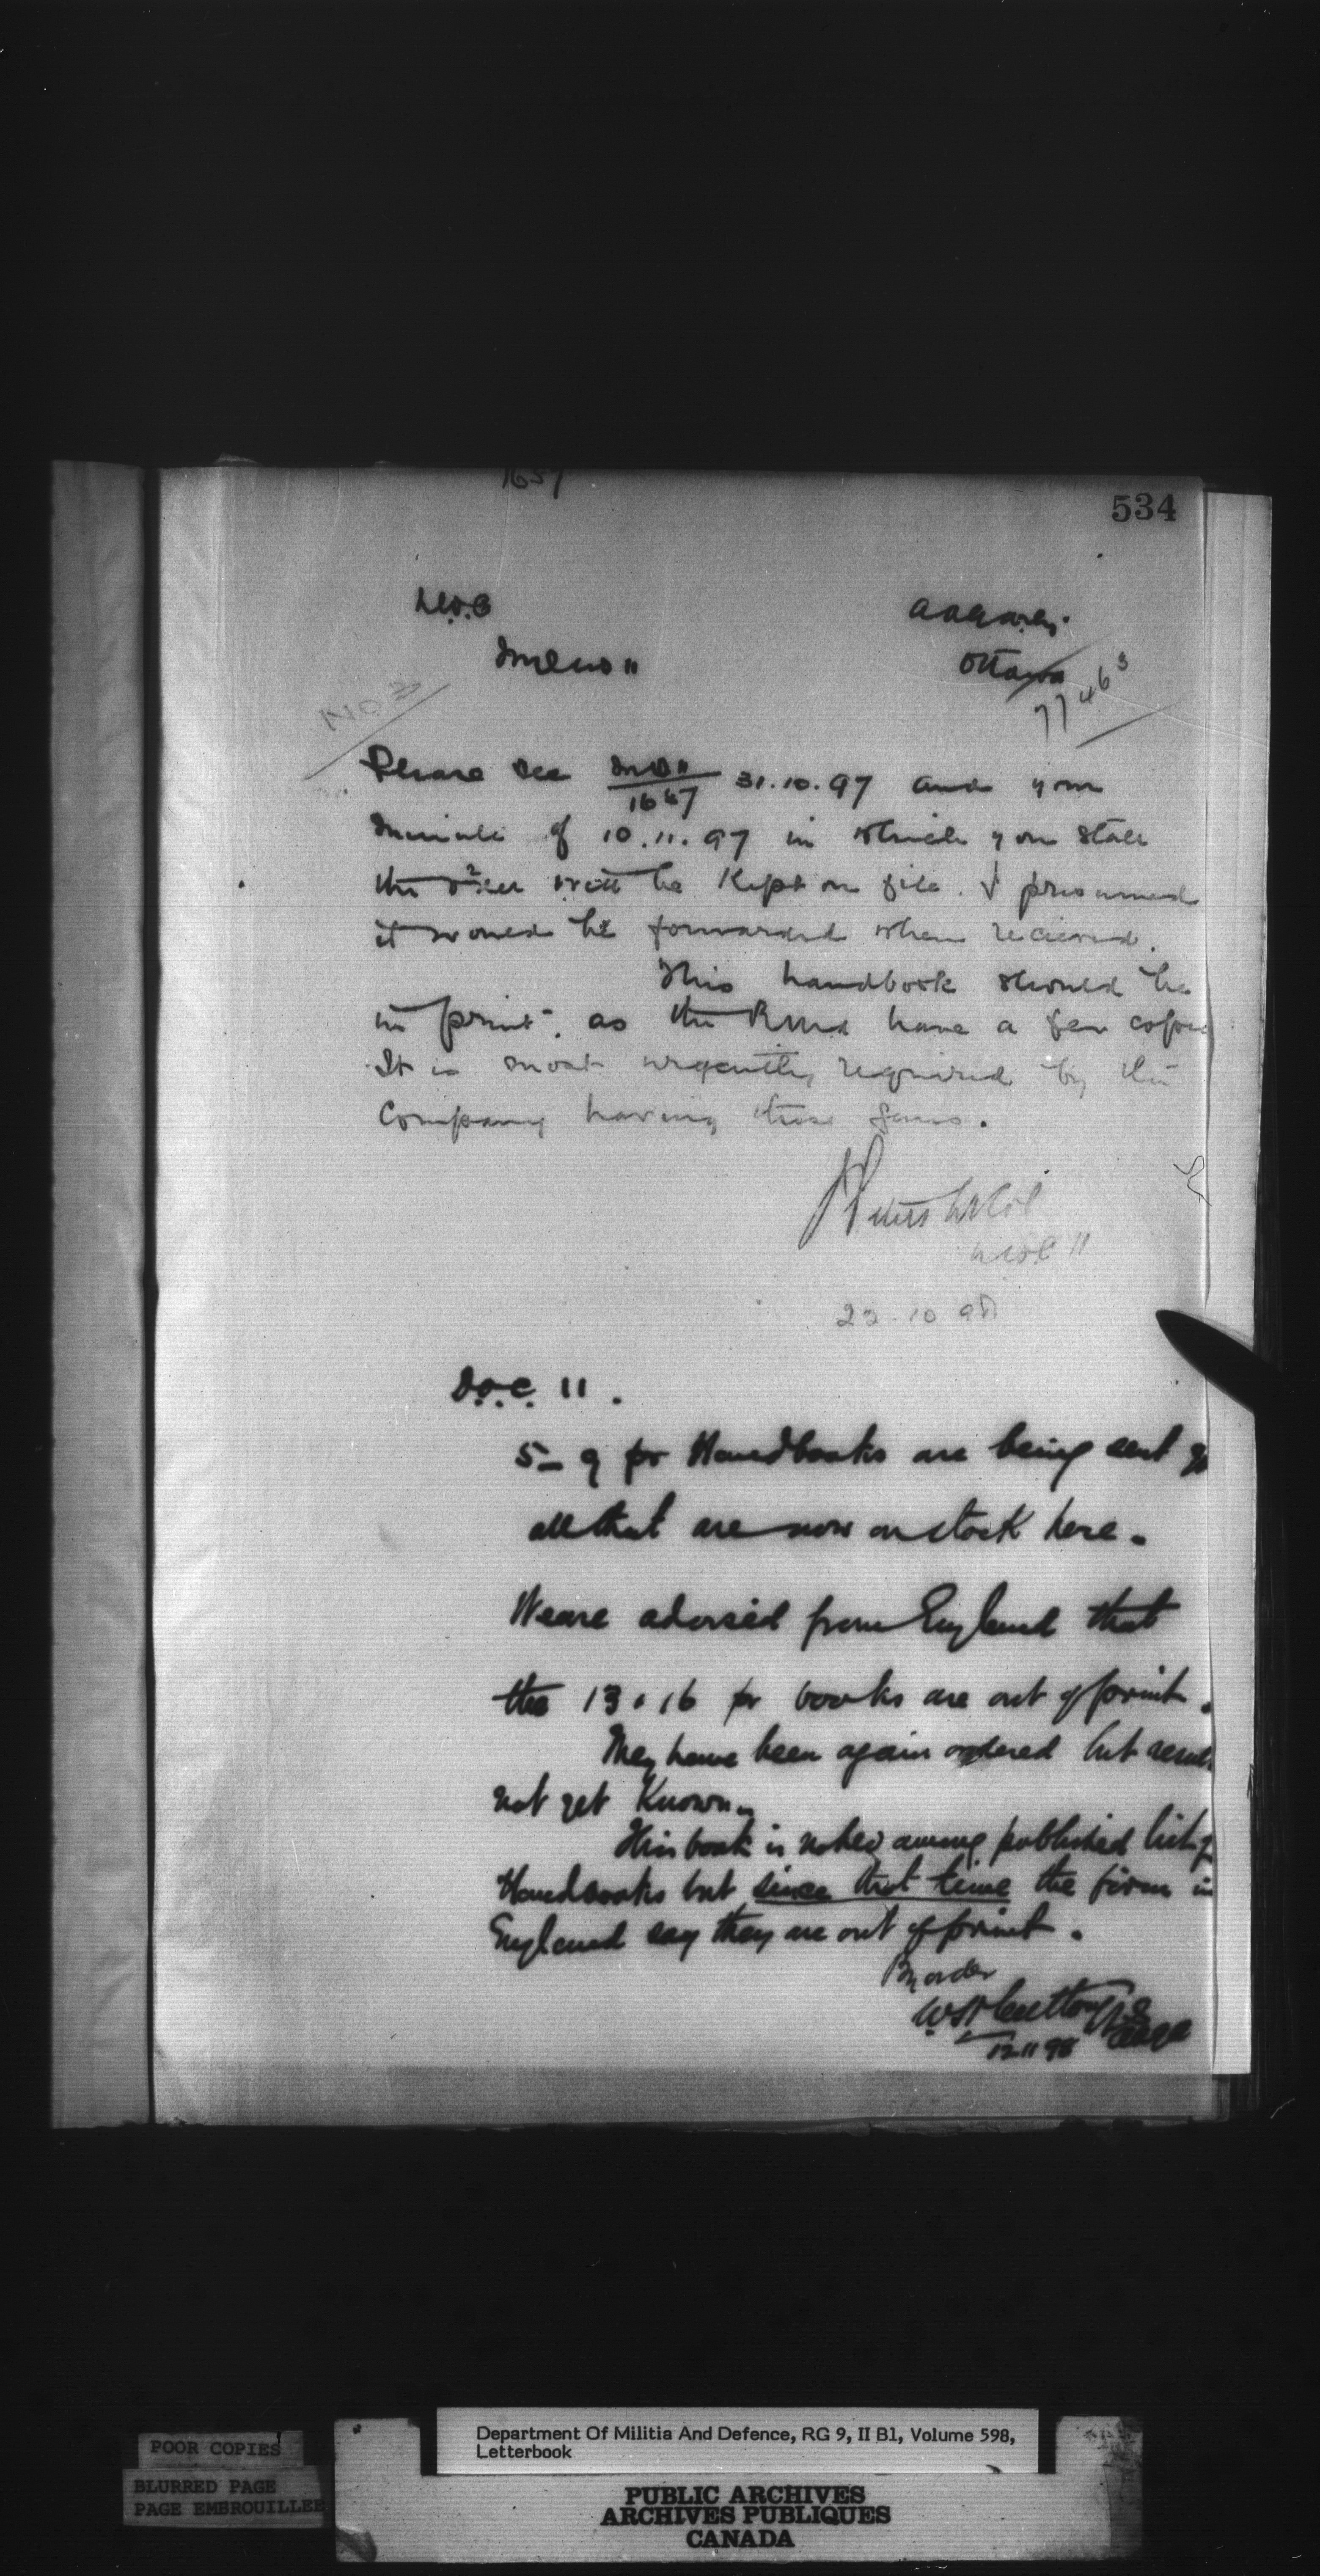 1657
534
D.O.C
A.A.G. Arty.
M D No 11
Ottawa
77463
Please see M.D.11 31.10.97 and your
1647
Minute of 10.11.97 in which you state
the order will be kept on file. I presumed
it would be forwarded when recieved.
This handbook should be
in "print". as the have a few copies
It is most urgently required by the
Company having these guns.
J Peters Lt Col
D.O.C 11
22.10.98
D.O.C. 11.
5 - 9 pr Handbooks are being sent
all that are now on stock here.
We are advised from England that
the 13 & 16 pr books are out of print.
They have been again ordered but result
not yet known.
This book is noted among published list of
Handbooks but since that time the firm in
England say they are out of print.
By order
12 11 98
POOR COPIES
BLURRED PAGE
PAGE EMBROUILLEE
Department Of Militia And Defence, RG 9, II B1, Volume 598,
Letterbook
PUBLIC ARCHIVES
ARCHIVES PUBLIQUES
CANADA